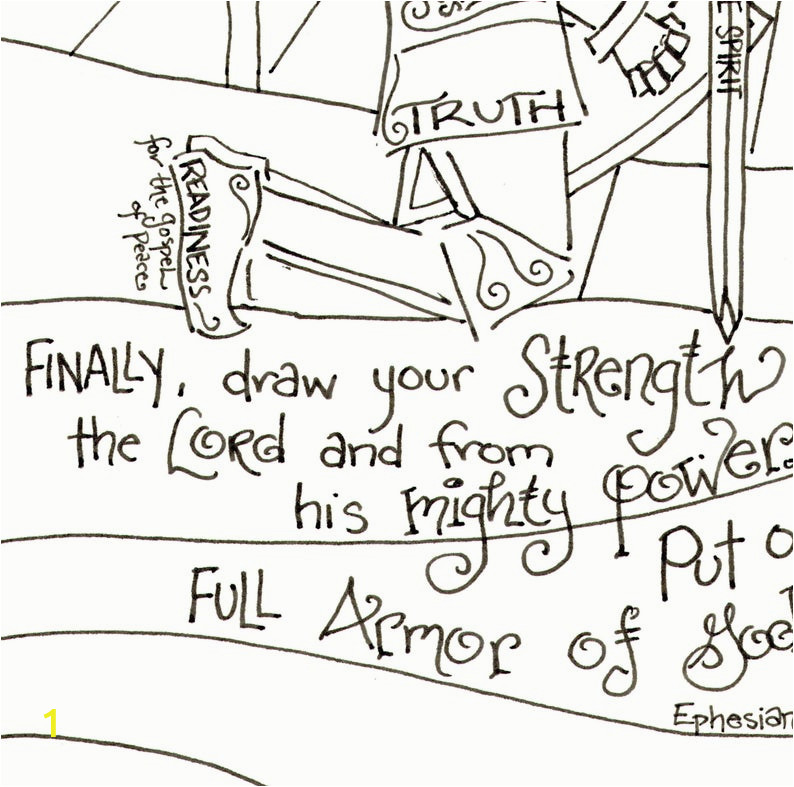 E SPIRIT
TRUTH
READINESS
for the gospel
of peace
FINALLY, draw your Strength
the LORd and from
his mighty power.
Put o
FULL Armor of God
Ephesian
1